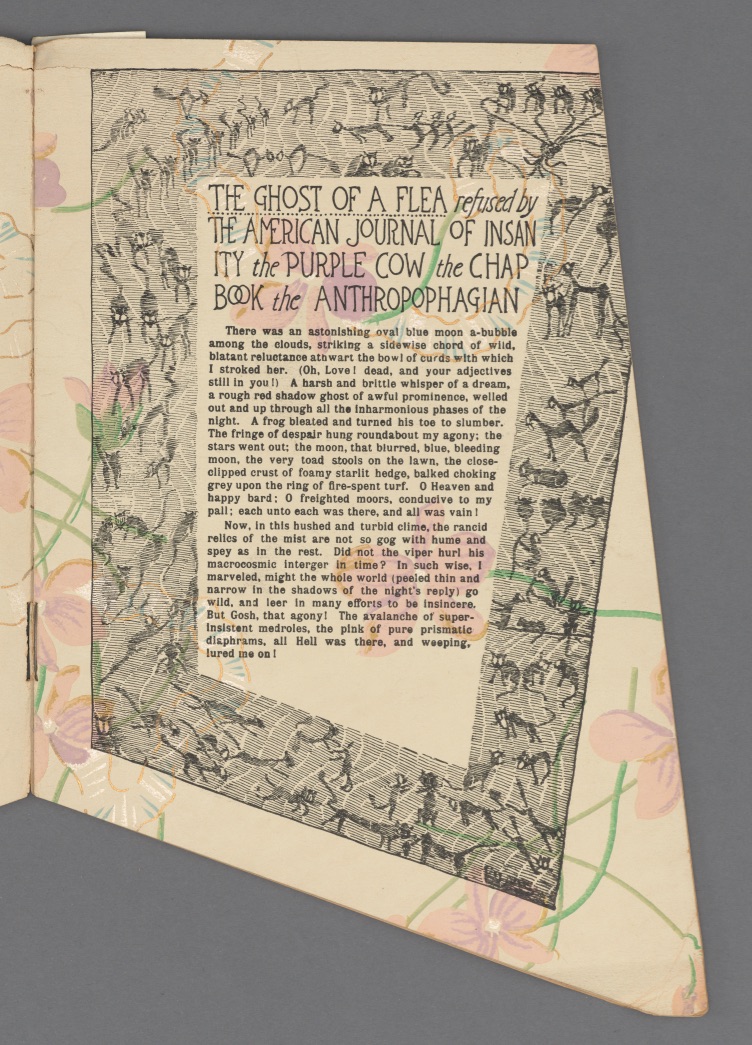 THE GHOST OF A FLEA refused by
THE AMERICAN JOURNAL OF INSAN
ITY the PURPLE COW the CHAP
BOOK the ANTHROPOPHAGIAN
There was an astonishing oval blue moon a-bubble
among the clouds, striking a sidewise chord of wild,
blatant reluctance athwart the bowl of curds with which
I stroked her. (Oh, Love! dead, and your adjectives
still in you!) A harsh and brittle whisper of a dream,
a rough red shadow ghost of awful prominence, welled
out and up through all the inharmonious phases of the
night. A frog bleated and turned his toe to slumber.
The fringe of despair hung roundabout my agony; the
stars went out; the moon, that blurred, blue, bleeding
moon, the very toad stools on the lawn, the close-
clipped crust of foamy starlit hedge, balked choking
grey upon the ring of fire-spent turf. O Heaven and
happy bard; O freighted moors, conducive to my
pall; each unto each was there, and all was vain!
Now, in this hushed and turbid clime, the rancid
relics of the mist are not so gog with hume and
spey as in the rest. Did not the viper hurl his
macrocosmic interger in time? In such wise, I
marveled, might the whole world (peeled thin and
narrow in the shadows of the night's reply) go
wild, and leer in many efforts to be insincere.
But Gosh, that agony! The avalanche of super-
insistent medroles, the pink of pure prismatic
diaphrams, all Hell was there, and weeping,
lured me on!